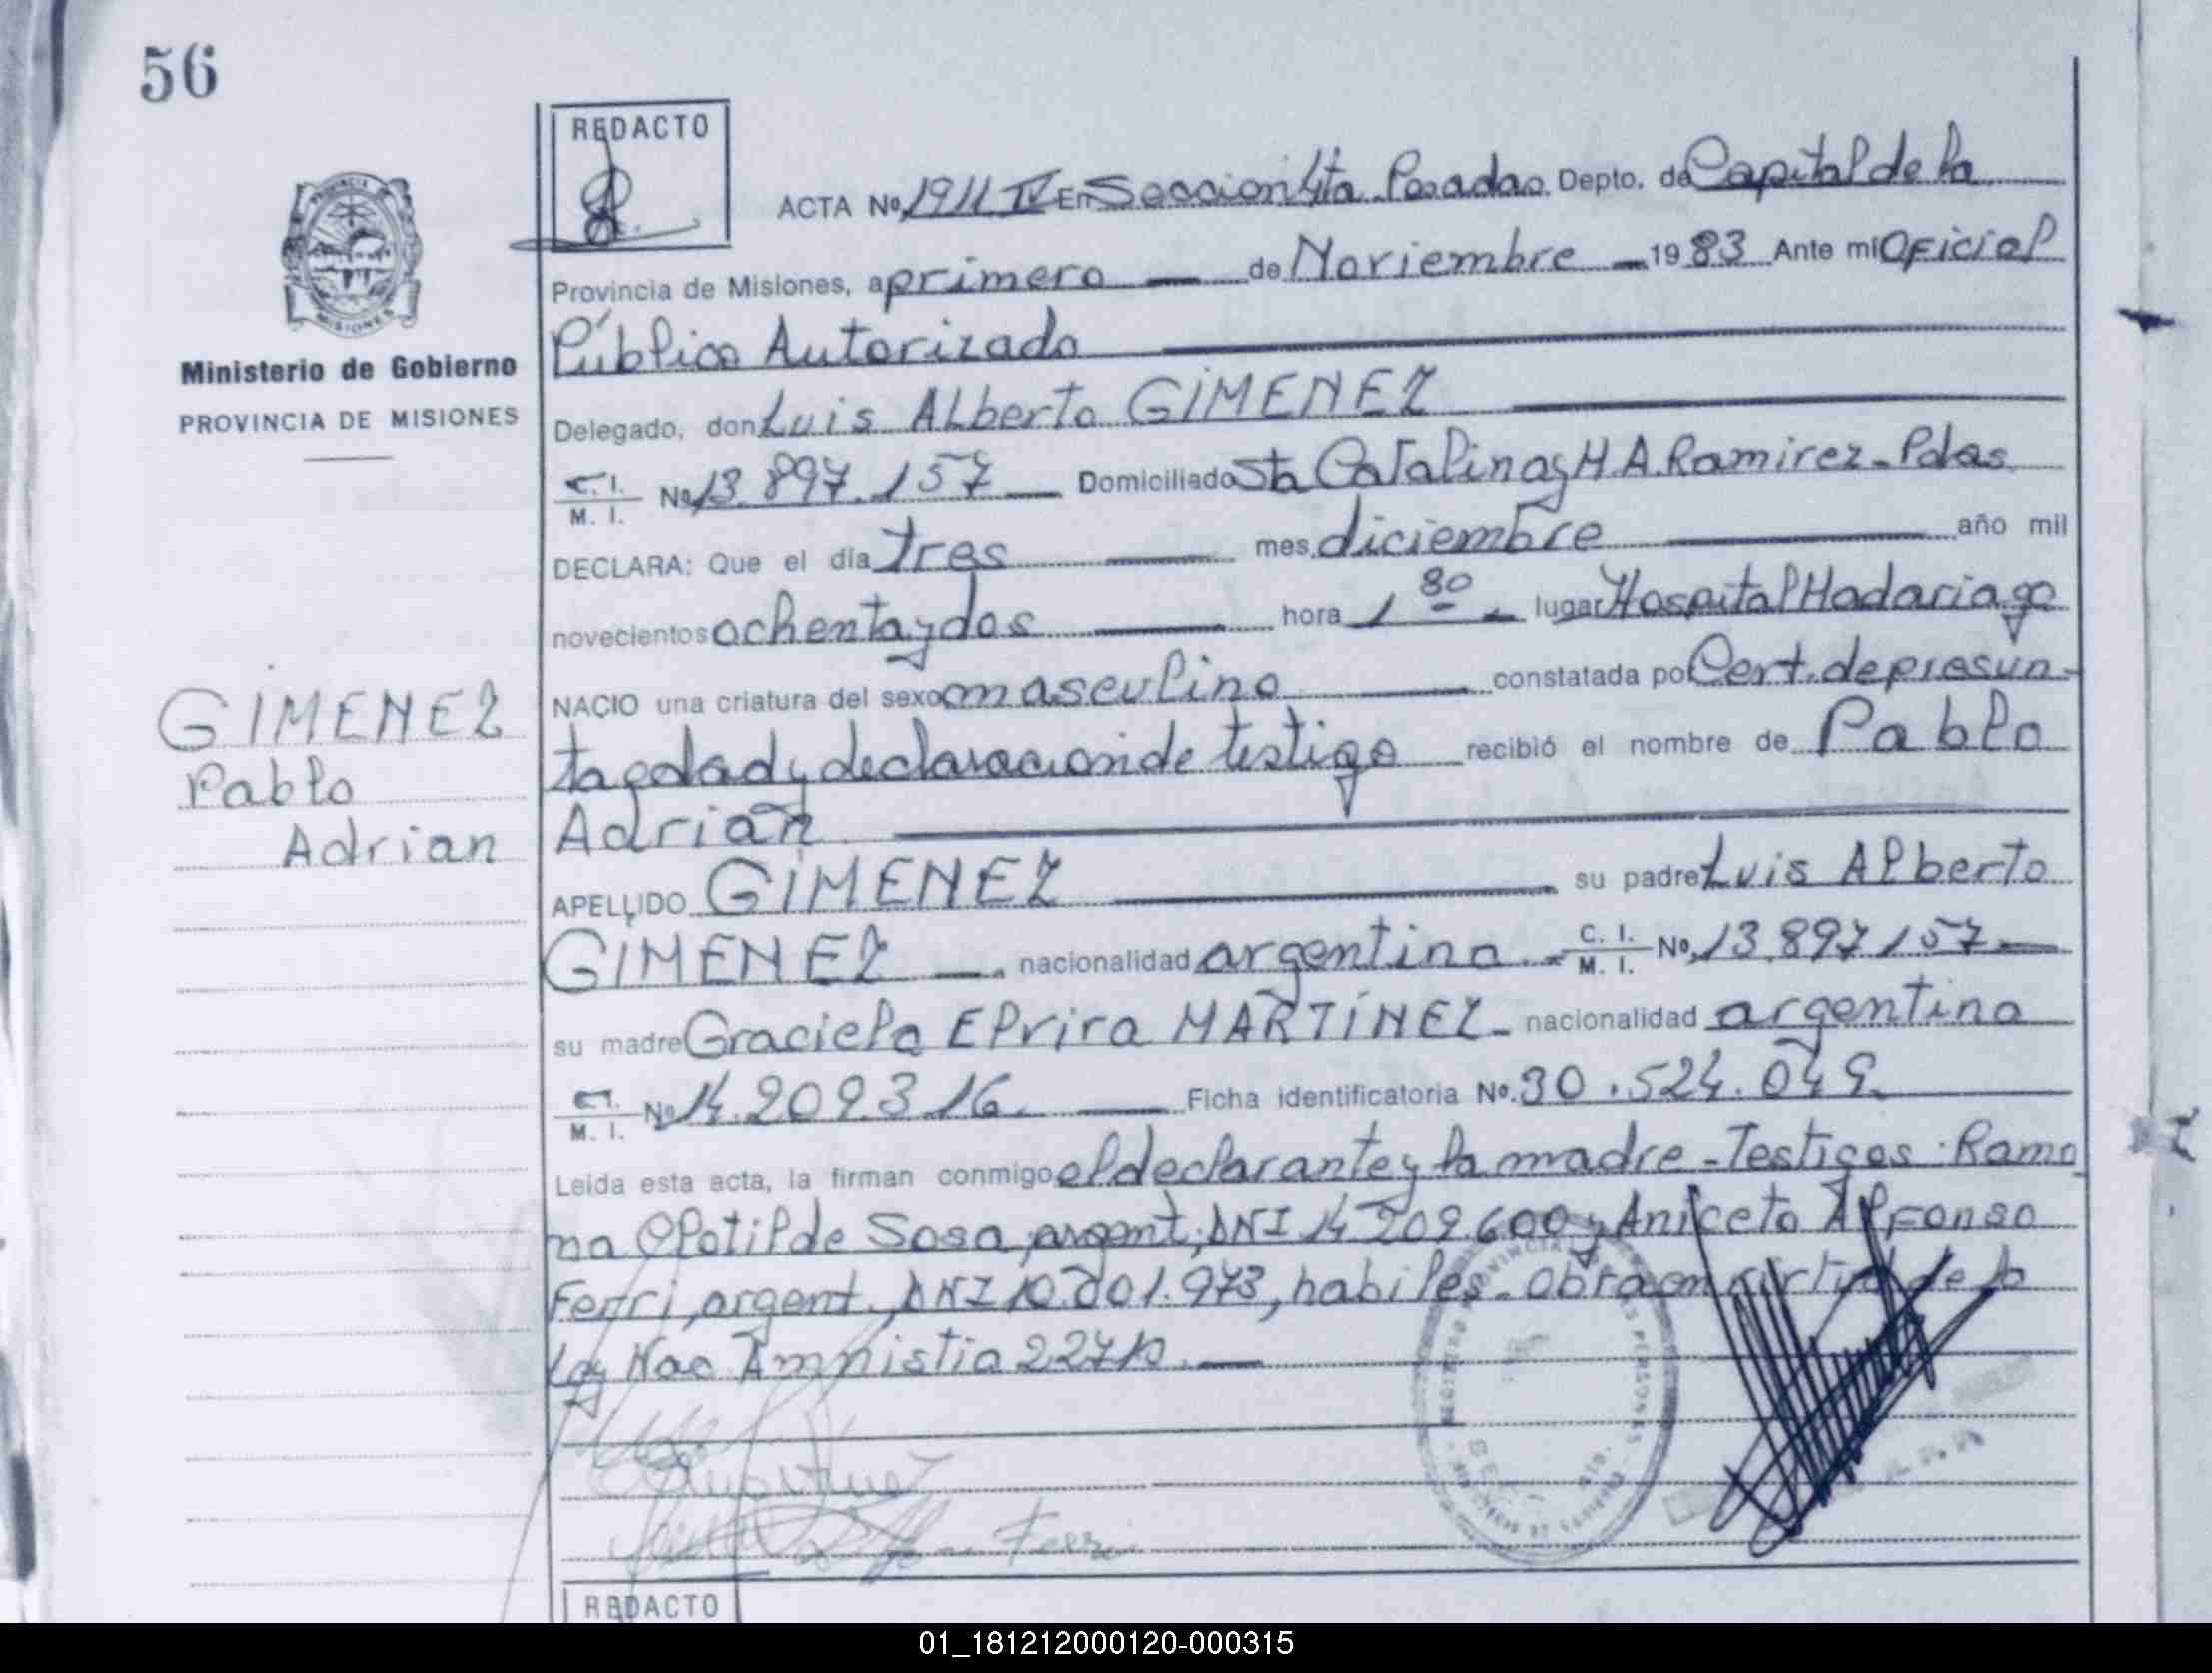 56
REDACTO
ACTA Nº 1911 IV En Seccion 4ta Posadas. Depto. de Capital de la
Provincia de Misiones, a primero de Noviembre 1983 Ante mi Oficial
Público Autorizado
Ministerio de Gobierno
PROVINCIA DE MISIONES
Delegado, don Luis Alberto GIMENEZ
C. I.
M. I. Nº 13.897.157 Domiciliado Sta Catalina y H A. Ramirez - Pdas
DECLARA: Que el día tres mes diciembre año mil
novecientos ochenta y dos hora 1 30 lugar Hospital Madariaga
NACIO una criatura del sexo masculino constatada por Cert. de presun-
ta edad y declaracion de testigo recibió el nombre de Pablo
Adrian
GIMENEZ
Pablo
Adrian
APELLIDO GIMENEZ su padre Luis Alberto
GIMENEZ nacionalidad argentina C. I.
M. I. Nº 13.897.157
su madre Graciela Elvira MARTÍNEZ - nacionalidad argentina
C. I.
M. I. Nº 14.209.316. Ficha identificatoria Nº. 30.524.049.
Leida esta acta, la firman conmigo el declarante y la madre - Testigos: Ramo
na Clotilde Sosa, argent, DNI 14 209.600 y Aniceto Alfonso
Ferri, argent., DNI 10.001.973, habiles - Obra en virtud de la
Ley Nac Amnistia 22410.
Ferri
REDACTO
01_181212000120-000315